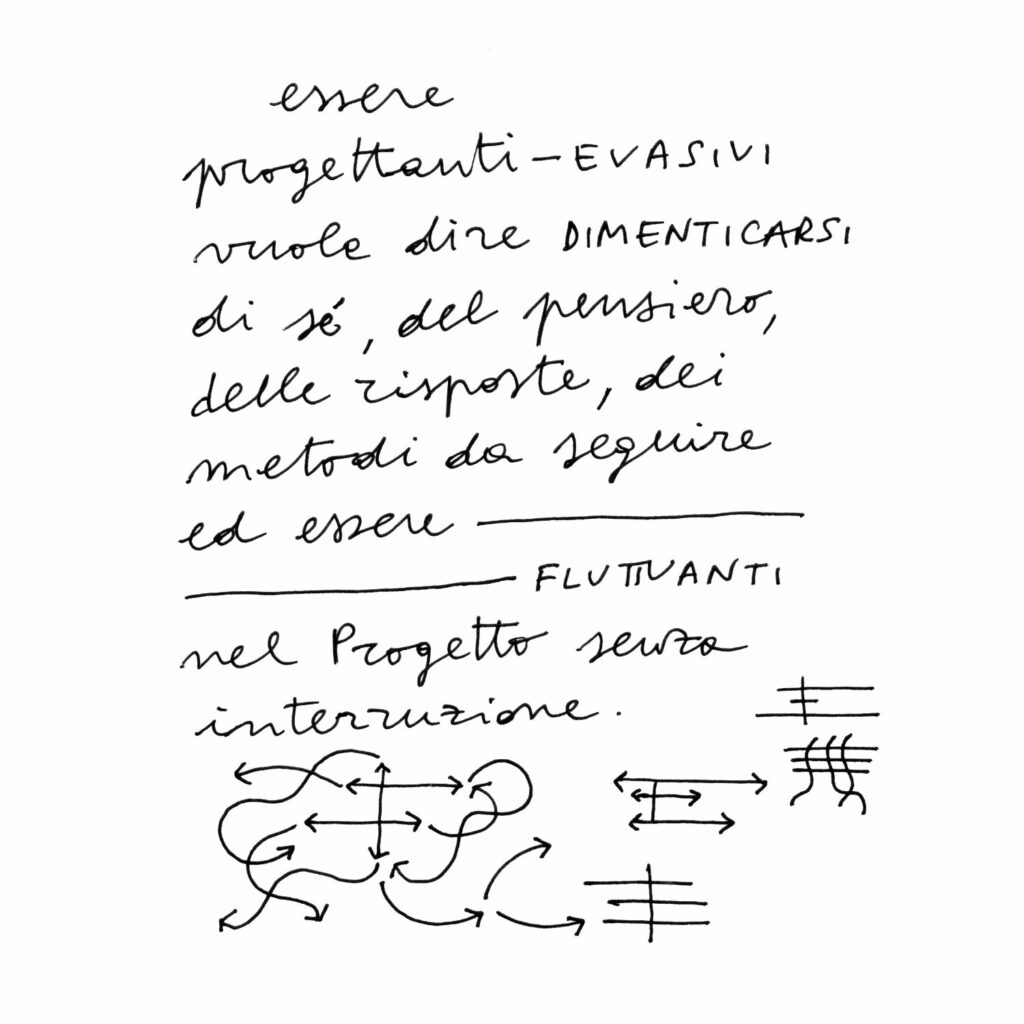 essere
progettanti – EVASIVI
vuole dire DIMENTICARSI
di sé, del pensiero,
delle risposte, dei
metodi da seguire
ed essere ———
——— FLUTTUANTI
nel Progetto senza
interruzione.